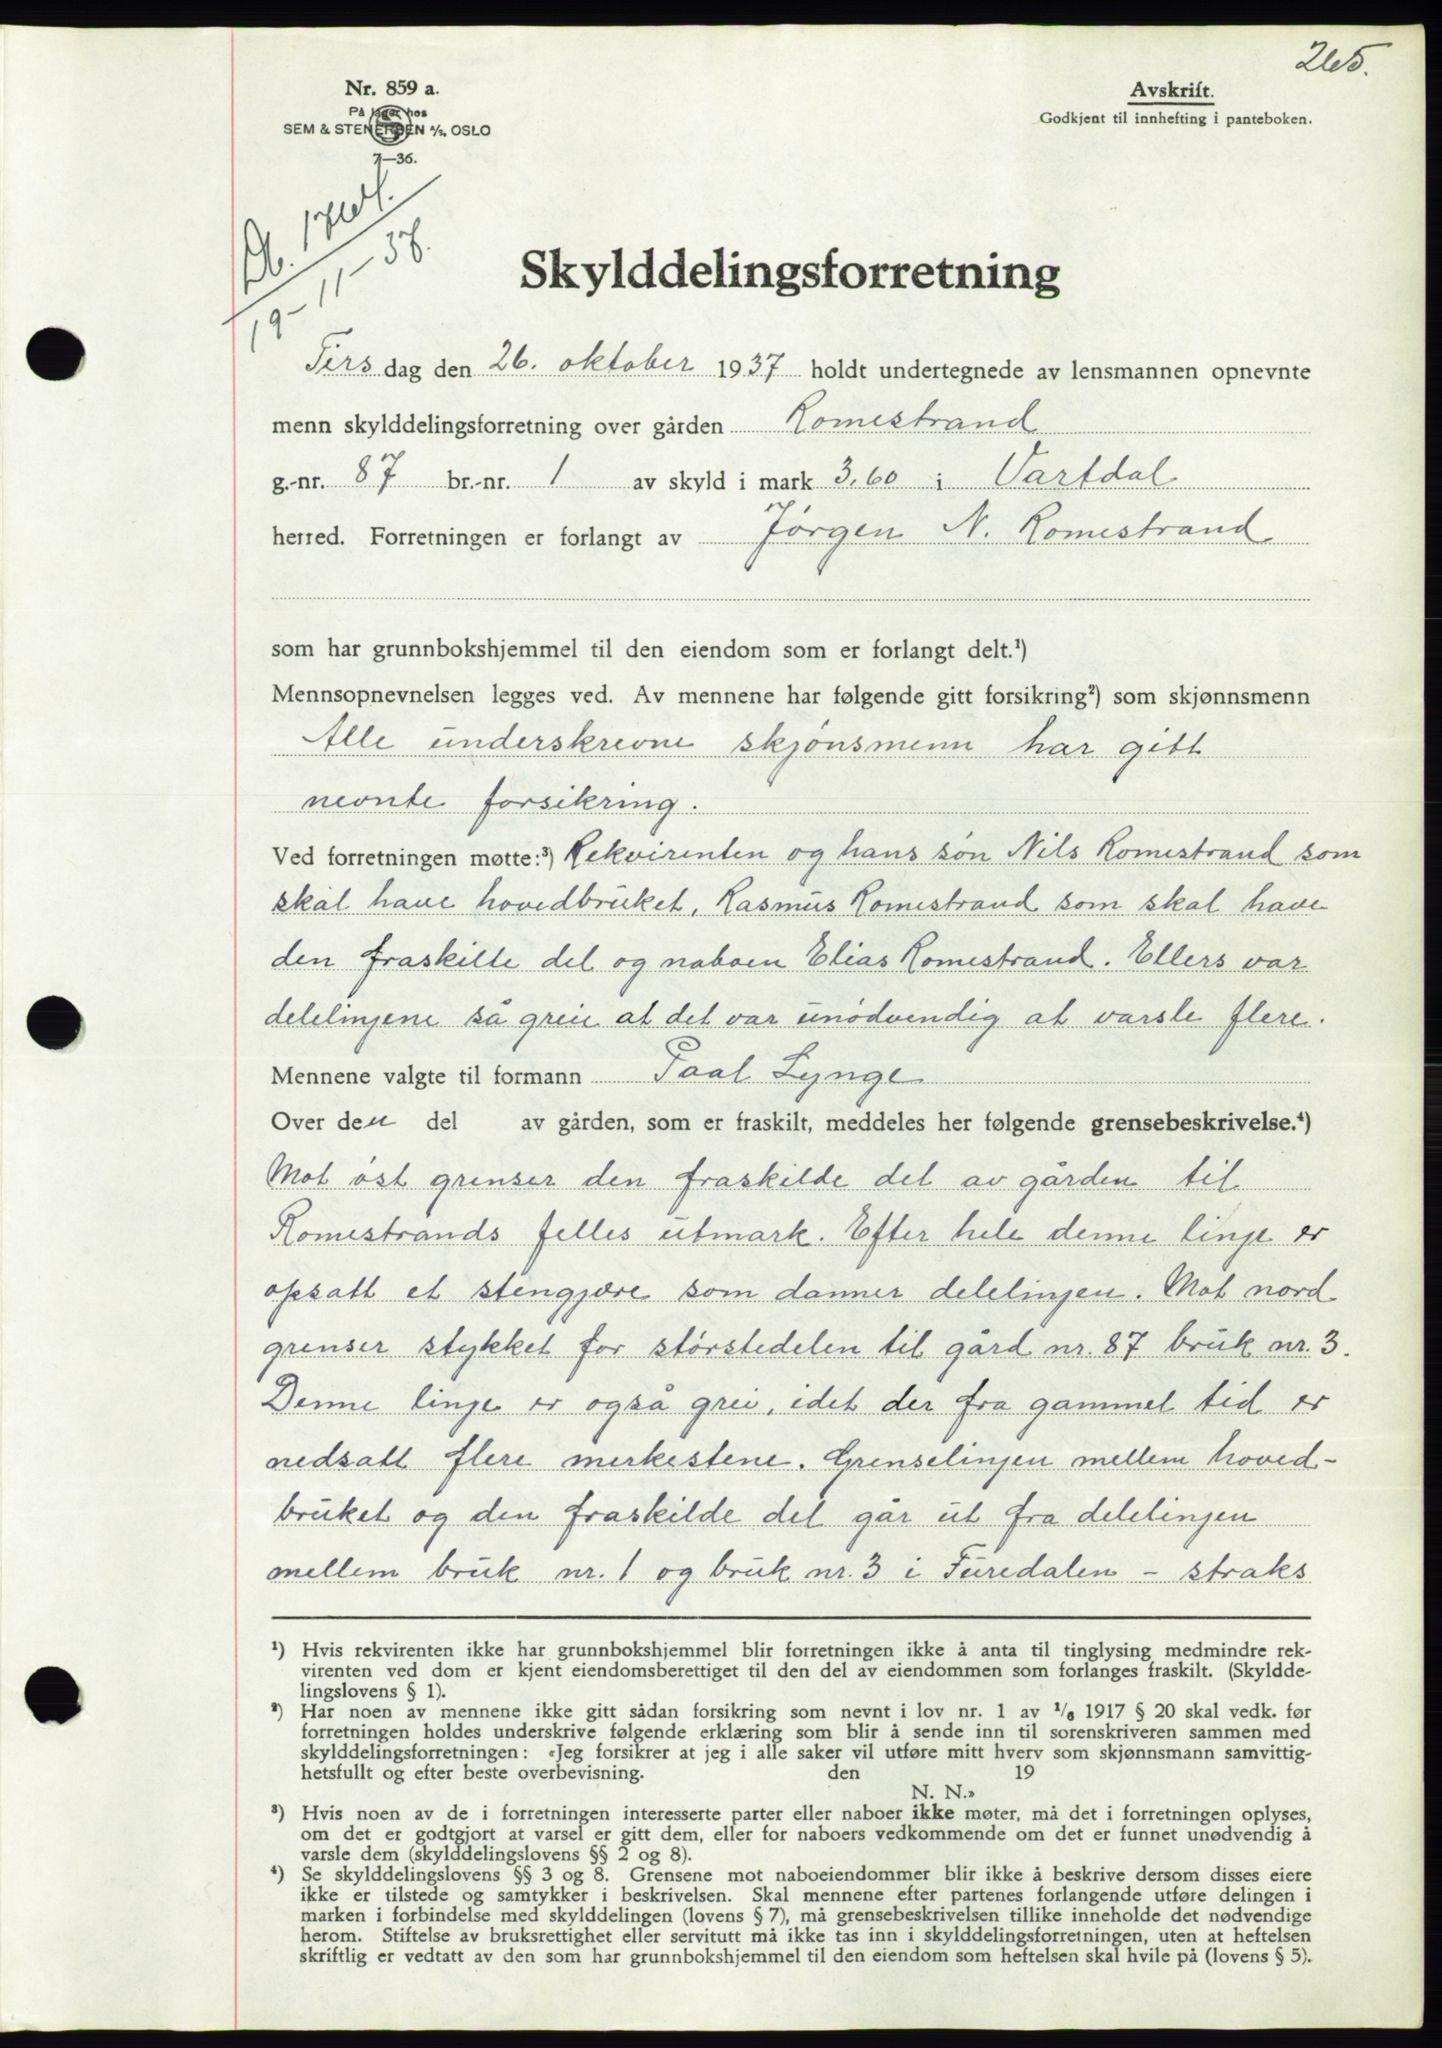 265.
Nr. 859 a.
På lager hos
SEM & STENERSEN A/S, OSLO
7—36.
Avskrift.
Godkjent til innhefting i panteboken.
Db.
19-11-37.
Skylddelingsforretning
Tirsdag den 26. oktober 1937 holdt undertegnede av lensmannen opnevnte
menn skylddelingsforretning over gården Romestrand
g.-nr. 87 br.-nr. 1 av skyld i mark 3,60 i Vartdal
herred. Forretningen er forlangt av Jørgen N. Romestrand
som har grunnbokshjemmel til den eiendom som er forlangt delt.¹)
Mennsopnevnelsen legges ved. Av mennene har følgende gitt forsikring²) som skjønnsmenn
Alle underskrevne skjønsmenn har gitt
nevnte forsikring.
Ved forretningen møtte:³) Rekvirenten og hans søn Nils Romestrand som
skal have hovedbruket, Rasmus Romestrand som skal have
den fraskilte del og naboen Elias Romestrand. Ellers var
delelinjene så greie at det var unødvendig at varsle flere.
Mennene valgte til formann Paal Lynge
Over den del av gården, som er fraskilt, meddeles her følgende grensebeskrivelse.⁴)
Mot øst grenser den fraskilde del av gården til
Romestrands felles utmark. Efter hele denne linje er
opsatt et stengjære som danner delelinjen. Mot nord
grenser stykket for størstedelen til gård nr. 87 bruk nr. 3.
Denne linje er også grei, idet der fra gammel tid er
nedsatt flere merkestene. Grenselinjen mellem hoved-
bruket og den fraskilde del går ut fra delelinjen
mellem bruk nr. 1 og bruk nr. 3 i Furedalen - straks
¹) Hvis rekvirenten ikke har grunnbokshjemmel blir forretningen ikke å anta til tinglysing medmindre rek-
virenten ved dom er kjent eiendomsberettiget til den del av eiendommen som forlanges fraskilt. (Skyldde-
lingslovens § 1).
²) Har noen av mennene ikke gitt sådan forsikring som nevnt i lov nr. 1 av 1/6 1917 § 20 skal vedk. før
forretningen holdes underskrive følgende erklæring som blir å sende inn til sorenskriveren sammen med
skylddelingsforretningen: «Jeg forsikrer at jeg i alle saker vil utføre mitt hverv som skjønnsmann samvittig-
hetsfullt og efter beste overbevisning. den 19
N. N.»
³) Hvis noen av de i forretningen interesserte parter eller naboer ikke møter, må det i forretningen oplyses,
om det er godtgjort at varsel er gitt dem, eller for naboers vedkommende om det er funnet unødvendig å
varsle dem (skylddelingslovens §§ 2 og 8).
⁴) Se skylddelingslovens §§ 3 og 8. Grensene mot naboeiendommer blir ikke å beskrive dersom disses eiere
ikke er tilstede og samtykker i beskrivelsen. Skal mennene efter partenes forlangende utføre delingen i
marken i forbindelse med skylddelingen (lovens § 7), må grensebeskrivelsen tillike inneholde det nødvendige
herom. Stiftelse av bruksrettighet eller servitutt må ikke tas inn i skylddelingsforretningen, uten at heftelsen
skriftlig er vedtatt av den som har grunnbokshjemmel til den eiendom som heftelsen skal hvile på (lovens § 5).